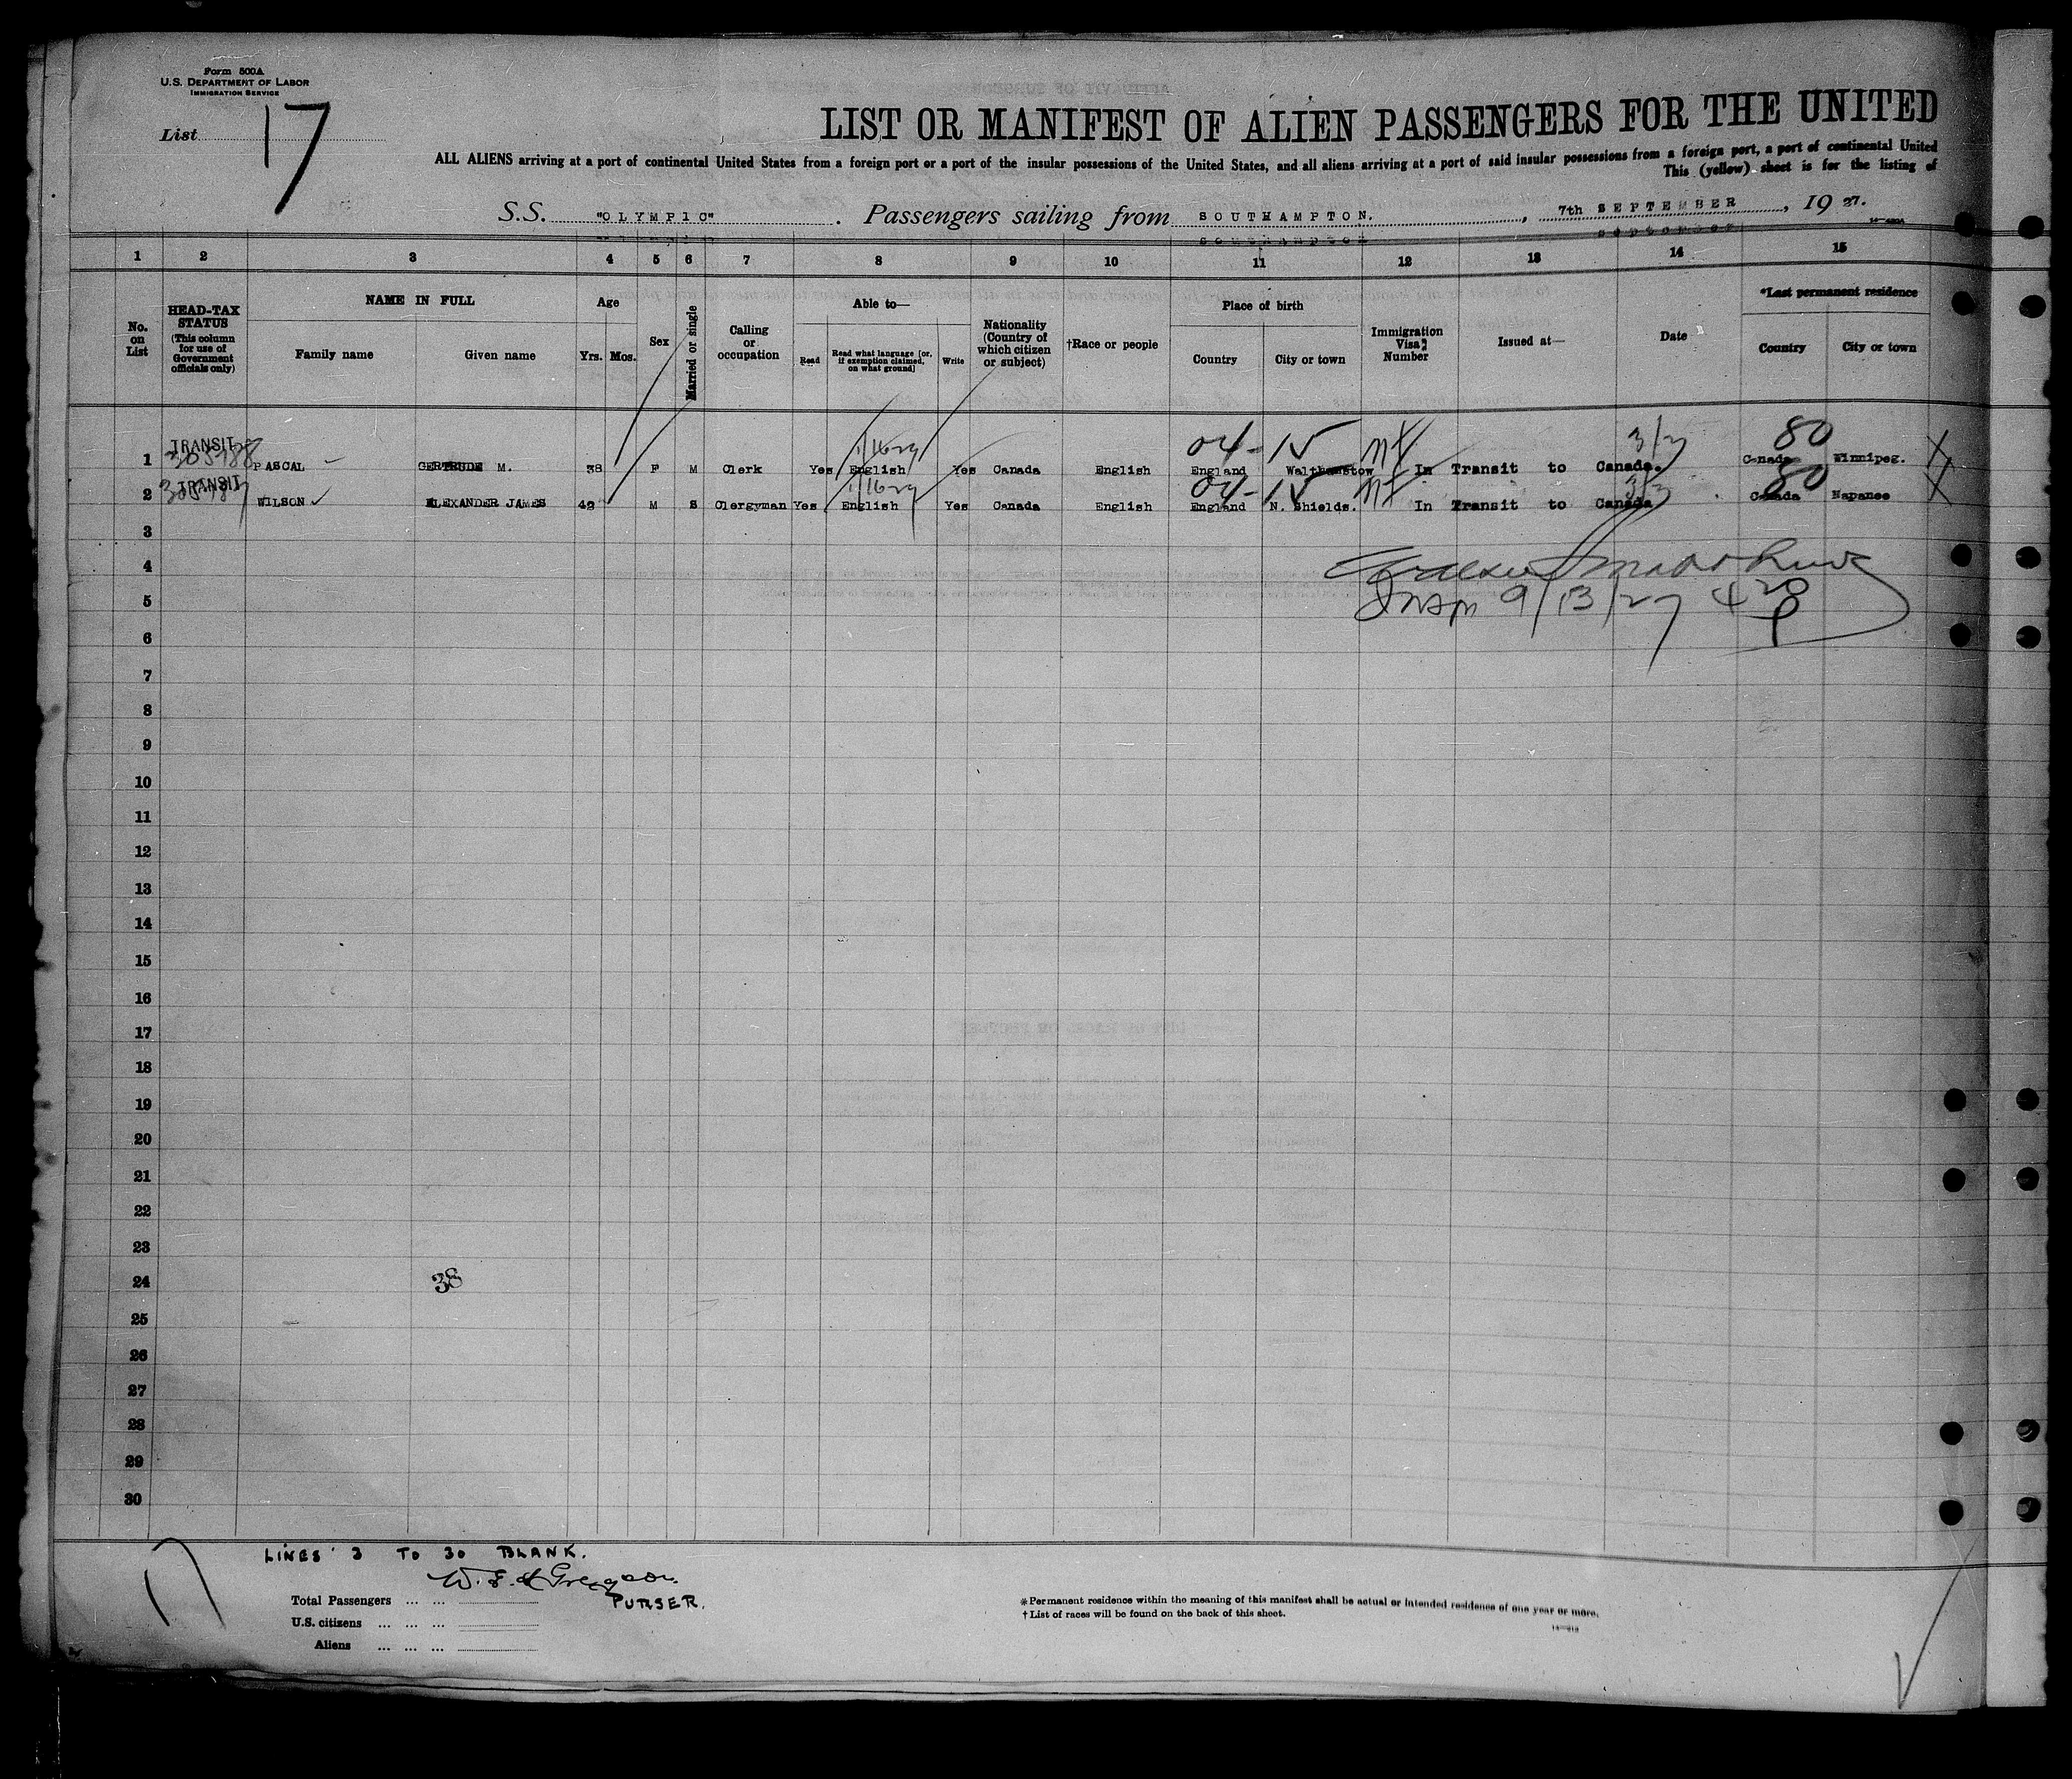 Form 500A
U.S. DEPARTMENT OF LABOR
IMMIGRATION SERVICE
List 17
LIST OR MANIFEST OF ALIEN PASSENGERS FOR THE UNITED
ALL ALIENS arriving at a port of continental United States from a foreign port or a port of the insular possessions of the United States, and all aliens arriving at a port of said insular possessions from a foreign port, a port of continental United
This (yellow) sheet is for the listing of
S.S. "OLYMPIC". Passengers sailing from SOUTHAMPTON., 7th SEPTEMBER, 1927.
1 2 3 4 5 6 7 8 9 10 11 12 13 14 15
No. on List
HEAD-TAX STATUS (This column for use of Government officials only)
NAME IN FULL
Family name Given name
Age
Yrs. Mos.
Sex
Married or single
Calling or occupation
Able to—
Read Read what language [or, if exemption claimed, on what ground] Write
Nationality (Country of which citizen or subject)
†Race or people
Place of birth
Country City or town
Immigration Visa Number
Issued at—
Date
*Last permanent residence
Country City or town
04-15 nt 3/2 80
1 TRANSIT PASCAL GERTRUDE M. 38 F M Clerk Yes English Yes Canada English England Walthamstow In Transit to Canada. Canada Winnipeg.
04-15 nt 3/2 80
2 TRANSIT WILSON ALEXANDER JAMES 49 M S Clergyman Yes English Yes Canada English England N. Shields. In Transit to Canada Canada Napanee
3
4
5 Insp 9/13/27 420
6
7
8
9
10
11
12
13
14
15
16
17
18
19
20
21
22
23
24 38
25
26
27
28
29
30
17
LINES 3 TO 30 BLANK.
PURSER.
Total Passengers ... ...
U.S. citizens ... ... ...
Aliens ... ... ...
*Permanent residence within the meaning of this manifest shall be actual or intended residence of one year or more.
†List of races will be found on the back of this sheet.